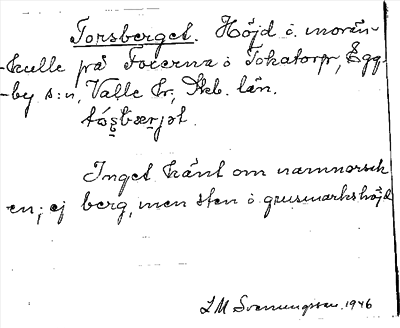 Torsberget. Höjd i morän-
kulle på Foxerna i Tokatorp, Egg-
-by s:n, Valle hr, Skb. län.
Inget känt om namnorsak
en; ej berg, men sten i grusmarkshöjd
LM Svenungsson, 1946